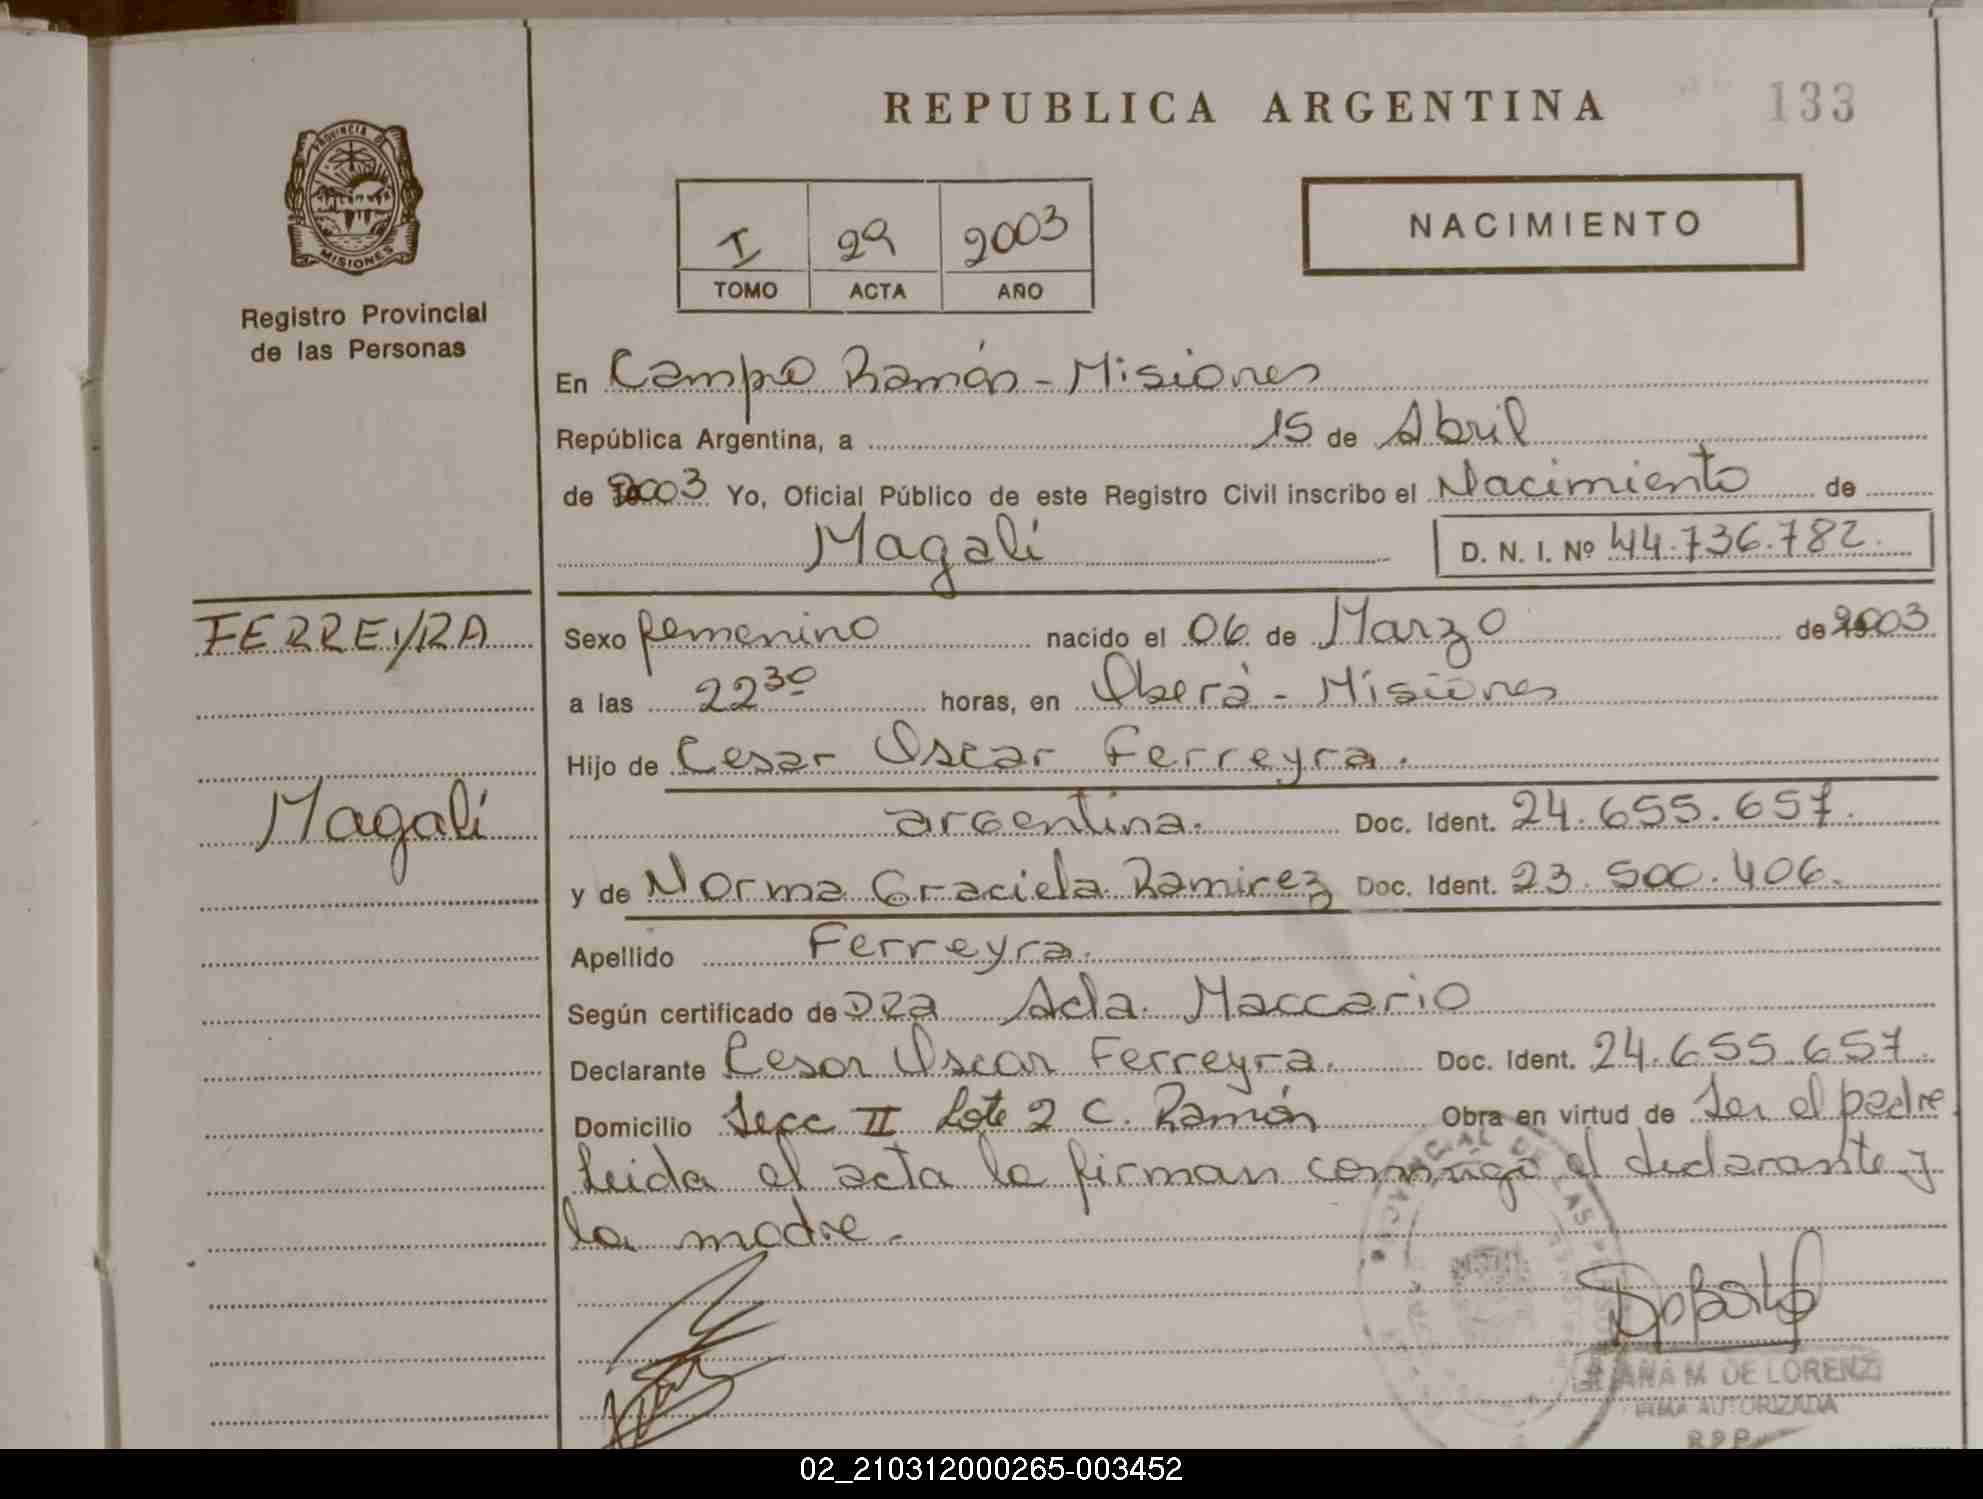 REPUBLICA ARGENTINA
133
PROVINCIA DE
MISIONES
Registro Provincial
de las Personas
I 29 2003
TOMO ACTA AÑO
NACIMIENTO
En Campo Ramón - Misiones
República Argentina, a 15 de Abril
de 2003 Yo, Oficial Público de este Registro Civil inscribo el Nacimiento de
Magalí D. N. I. Nº 44.736.782.
FERREYRA
Magalí
Sexo femenino nacido el 06 de Marzo de 2003
a las 22³⁰ horas, en Oberá - Misiones
Hijo de Cesar Oscar Ferreyra.
argentina. Doc. Ident. 24.655.657.
y de Norma Graciela Ramirez Doc. Ident. 23.500.406.
Apellido Ferreyra.
Según certificado de DRA Ada Maccario
Declarante Cesar Oscar Ferreyra. Doc. Ident. 24.655.657.
Domicilio Secc II Lote 2 C. Ramón Obra en virtud de Ser el padre.
Leida el acta la firman conmigo el declarante y
la madre.
ANA M. DE LORENZI
FIRMA AUTORIZADA
R.P.P.
02_210312000265-003452